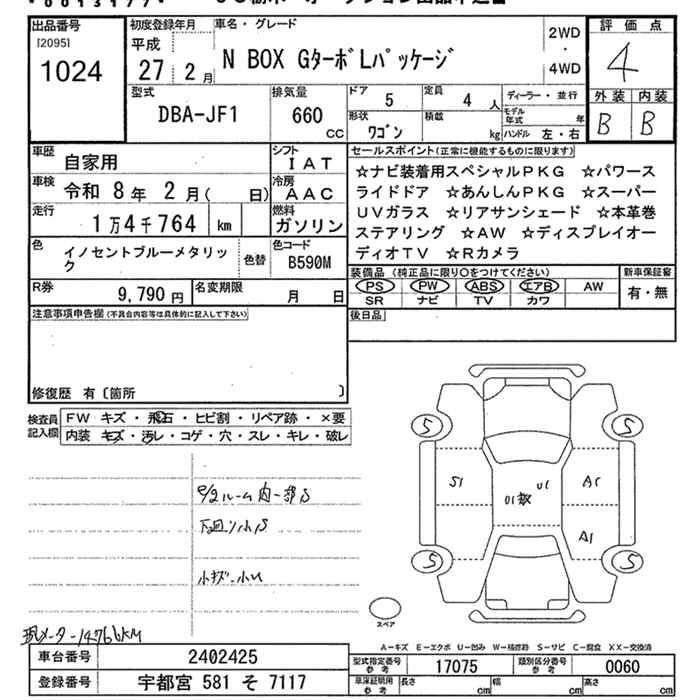 出品番号
[2095]
1024
初度登録年月
平成
27 2月
車名・グレード
N BOX GターボLパッケージ
2WD
・
4WD
評価点
4
外装 内装
B B
型式
DBA-JF1
排気量
660
CC
ドア
5
定員
4 人
ディーラー・並行
形状
ワゴン
積載
kg
モデル年式
年
ハンドル 左・右
車歴
自家用
シフト
IAT
車検
令和 8年 2月( 日)
冷房
AAC
走行
1万4千764 km
燃料
ガソリン
色
イノセントブルーメタリック
色替
色コード
B590M
R券
9,790円
名変期限
月 日
セールスポイント(正常に機能するものに限ります)
☆ナビ装着用スペシャルPKG ☆パワース
ライドドア ☆あんしんPKG ☆スーパー
UVガラス ☆リアサンシェード ☆本革巻
ステアリング ☆AW ☆ディスプレイオー
ディオTV ☆Rカメラ
装備品(純正品に限り○をつけてください)
PS PW ABS エアB AW
SR ナビ TV カワ
新車保証書
有・無
注意事項申告欄(不具合内容等は具体的に記入して下さい)
後日品
修復歴 有〔箇所 〕
検査員記入欄
FW キズ・飛石・ヒビ割・リペア跡・×要
内装 キズ・汚レ・コゲ・穴・スレ・キレ・破レ
下廻り小S
小キズ・小U
現メーター14766KM
5 5
S1 U1 U1 A1
A1
5 5
スペア
A-キズ E-エクボ U-凹み W-補修跡 S-サビ C-腐食 XX-交換済
車台番号
2402425
登録番号
宇都宮 581 そ 7117
型式指定番号
参考
17075
類別区分番号
参考
0060
車庫証明用
参考
長さ cm
幅 cm
高さ cm